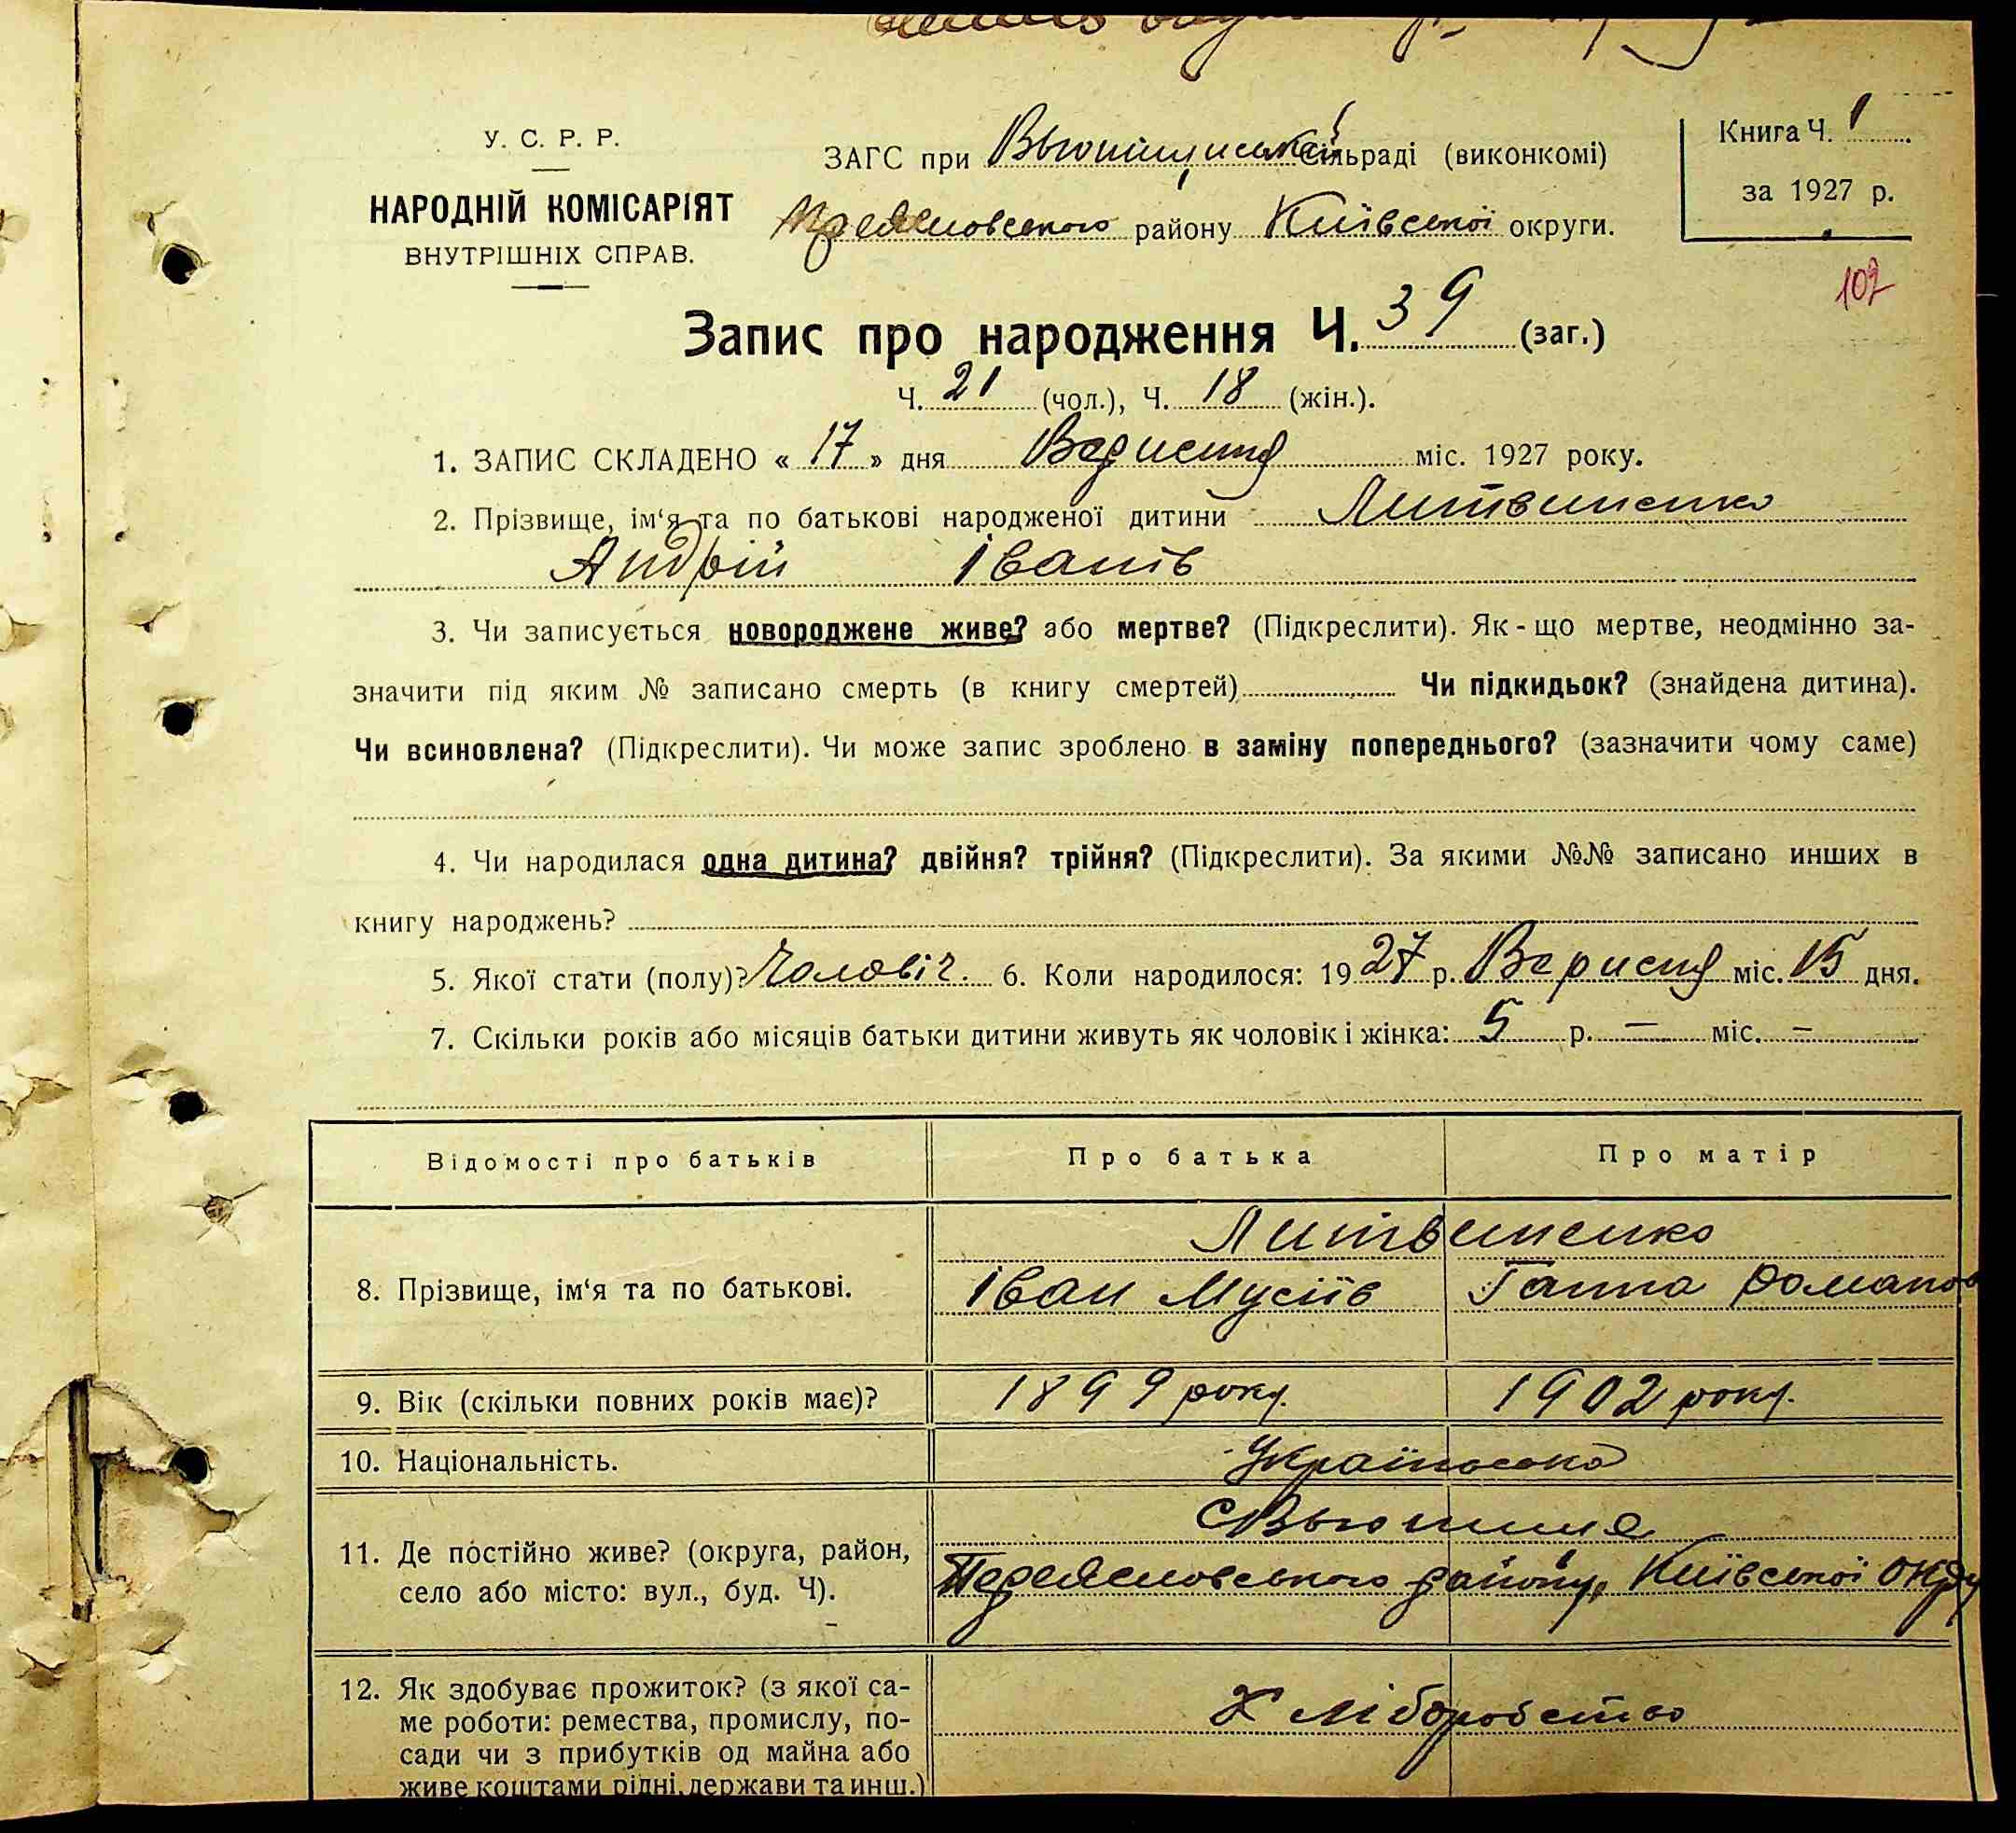 У. С. Р. Р.
НАРОДНІЙ КОМІСАРІЯТ
ВНУТРІШНІХ СПРАВ.
ЗАГС при сільраді (виконкомі)
району Київської округи.
Книга Ч. 1
за 1927 р.
102
Запис про народження Ч. 39 (заг.)
Ч. 21 (чол.), Ч. 18 (жін.).
1. ЗАПИС СКЛАДЕНО « 17 » дня Вересня міс. 1927 року.
2. Прізвище, ім‘я та по батькові народженої дитини Литвиненко
Андрій Іванів
3. Чи записується новороджене живе? або мертве? (Підкреслити). Як-що мертве, неодмінно за-
значити під яким № записано смерть (в книгу смертей) Чи підкидьок? (знайдена дитина).
Чи всиновлена? (Підкреслити). Чи може запис зроблено в заміну попереднього? (зазначити чому саме)
4. Чи народилася одна дитина? двійня? трійня? (Підкреслити). За якими №№ записано инших в
книгу народжень?
5. Якої стати (полу)? Чоловіч. 6. Коли народилося: 1927 р. Вересня міс. 15 дня.
7. Скільки років або місяців батьки дитини живуть як чоловік і жінка: 5 р. — міс. —
Відомості про батьків Про батька Про матір
Литвиненко
8. Прізвище, ім‘я та по батькові. Іван Мусіїв Ганна Романов
9. Вік (скільки повних років має)? 1899 року. 1902 року.
10. Національність. Українська
11. Де постійно живе? (округа, район,
село або місто: вул., буд. Ч).
Переяславського району, Київської окру
12. Як здобуває прожиток? (з якої са-
ме роботи: ремества, промислу, по-
сади чи з прибутків од майна або
живе коштами рідні, держави та инш.)
Хліборобство